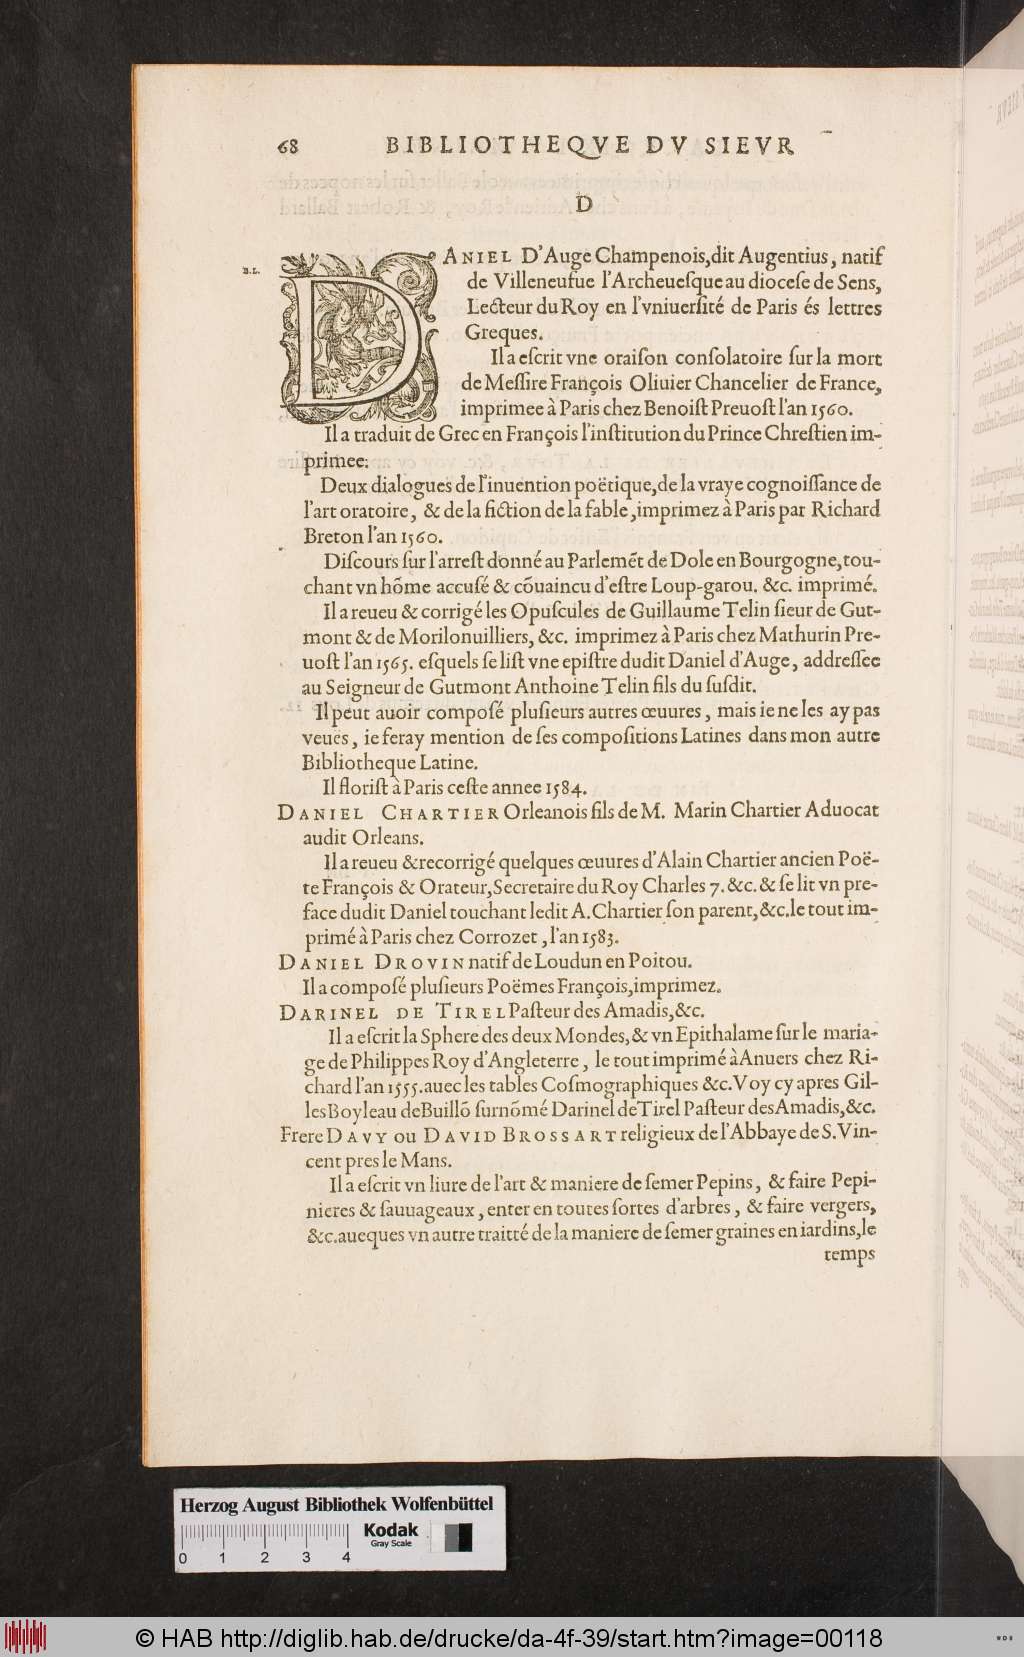 68 BIBLIOTHEQVE DV SIEVR
D
B.L.
DANIEL D'Auge Champenois,dit Augentius, natif
de Villeneufue l'Archeueſque au dioceſe de Sens,
Lecteur du Roy en l'vniuerſité de Paris és lettres
Greques.
Il a eſcrit vne oraiſon conſolatoire ſur la mort
de Meſſire François Oliuier Chancelier de France,
imprimee à Paris chez Benoiſt Preuoſt l'an 1560.
Il a traduit de Grec en François l'inſtitution du Prince Chreſtien im-
primee.
Deux dialogues de l'inuention poëtique,de la vraye cognoiſſance de
l'art oratoire, & de la fiction de la fable,imprimez à Paris par Richard
Breton l'an 1560.
Diſcours ſur l'arreſt donné au Parlemẽt de Dole en Bourgogne,tou-
chant vn hõme accuſé & cõuaincu d'eſtre Loup-garou. &c. imprimé.
Il a reueu & corrigé les Opuſcules de Guillaume Telin ſieur de Gut-
mont & de Morilonuilliers, &c. imprimez à Paris chez Mathurin Pre-
uoſt l'an 1565. eſquels ſe liſt vne epiſtre dudit Daniel d'Auge, addreſſee
au Seigneur de Gutmont Anthoine Telin fils du ſuſdit.
Il peut auoir compoſé pluſieurs autres œuures, mais ie ne les ay pas
veuës, ie feray mention de ſes compoſitions Latines dans mon autre
Bibliotheque Latine.
Il floriſt à Paris ceſte annee 1584.
DANIEL CHARTIER Orleanois fils de M. Marin Chartier Aduocat
audit Orleans.
Il a reueu & recorrigé quelques œuures d'Alain Chartier ancien Poë-
te François & Orateur,Secretaire du Roy Charles 7. &c. & ſe lit vn pre-
face dudit Daniel touchant ledit A. Chartier ſon parent,&c.le tout im-
primé à Paris chez Corrozet, l'an 1583.
DANIEL DROVIN natif de Loudun en Poitou.
Il a compoſé pluſieurs Poëmes François,imprimez.
DARINEL DE TIREL Paſteur des Amadis,&c.
Il a eſcrit la Sphere des deux Mondes,& vn Epithalame ſur le maria-
ge de Philippes Roy d'Angleterre, le tout imprimé à Anuers chez Ri-
chard l'an 1555.auec les tables Coſmographiques &c.Voy cy apres Gil-
les Boyleau de Buillõ ſurnõmé Darinel de Tirel Paſteur des Amadis,&c.
Frere DAVY ou DAVID BROSSART religieux de l'Abbaye de S.Vin-
cent pres le Mans.
Il a eſcrit vn liure de l'art & maniere de ſemer Pepins, & faire Pepi-
nieres & ſauuageaux, enter en toutes ſortes d'arbres, & faire vergers,
&c.auecques vn autre traitté de la maniere de ſemer graines en iardins,le
temps
Herzog August Bibliothek Wolfenbüttel
Kodak
Gray Scale
0 1 2 3 4
© HAB http://diglib.hab.de/drucke/da-4f-39/start.htm?image=00118